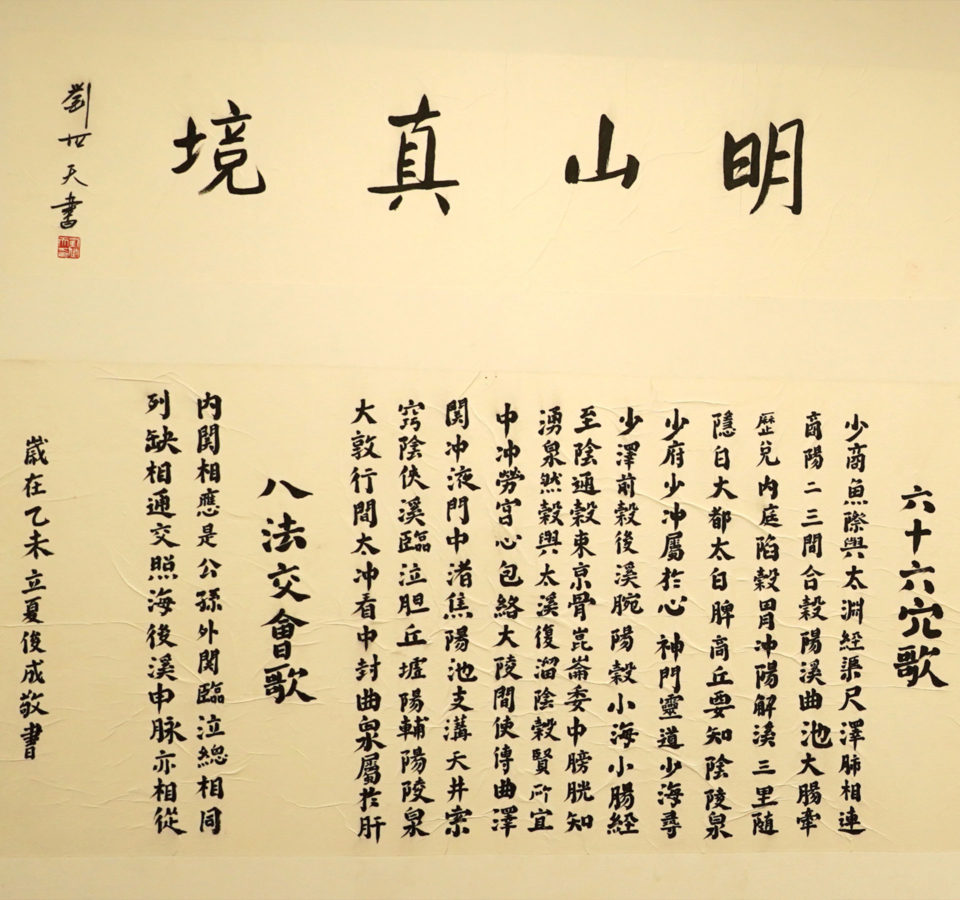 明山真境
劉世天書
六十六穴歌
少商魚際與太淵經渠尺澤肺相連
商陽二三間合穀陽溪曲池大腸牽
歷兌內庭陷穀胃冲陽解溪三里隨
隱白大都太白脾商丘要知陰陵泉
少府少冲屬於心神門靈道少海尋
少澤前穀後溪腕陽穀小海小腸經
至陰通穀束京骨崑崙委中膀胱知
湧泉然穀與太溪復溜陰穀腎所宜
中冲勞宮心包絡大陵間使傳曲澤
関冲液門中渚焦陽池支溝天井索
竅陰俠溪臨泣胆丘墟陽輔陽陵泉
大敦行間太冲看中封曲泉屬於肝
八法交會歌
內関相應是公孫外関臨泣總相同
列缺相通交照海後溪申脉亦相從
歲在乙未立夏俊成敬書